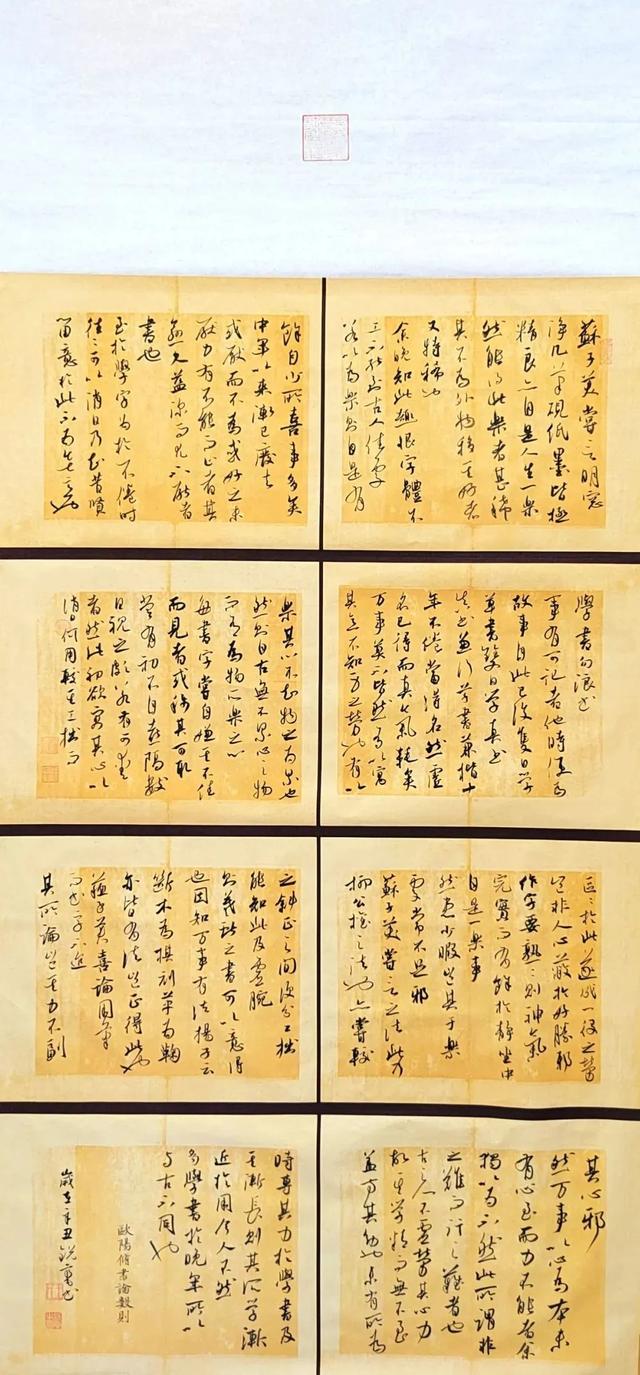 蘇子美嘗言明窓
净几筆硯紙墨皆極
精良亦自是人生一樂
然能得此樂者甚稀
其不為外物移其好者
又特稀也
余晚知此趣恨字體不
工不能到古人佳處
若以為樂則自是有
餘自少所喜事多矣
中年以來漸已廢去
或厭而不為或好之未
厭力有不能而止者其
愈久益深而尤不厭者
書也
至於學字為於不倦時
往往可以消日乃知昔賢
留意於此不為無意也
學書勾浪书
事有可記者他時便為
故事自此已後隻日學
草書雙日學真书
真书兼行草書兼楷十
年不倦當得名然虛
名已得而真氣耗矣
万事莫不皆然有以寓
其意不知身之勞也有以
樂其心不知物之為累也
然則自古無不累心之物
而有為物所樂之心
每書字嘗自嫌其不佳
而見者或稱其可取
嘗有初不自喜隔數
日視之頗若有可愛
者然此初欲寓其心以
消日何用較其工拙而
區區於此遂成一役之勞
豈非人心蔽於好勝邪
作字要熟熟則神氣
完實而有餘於静坐中
自是一樂事
然患少暇豈其于樂
處常不足邪
蘇子美嘗言之法此乃
柳公權之法也亦嘗較
之斜正之間便分工拙
能知此及虛腕
則羲獻之書可以意得
也因知万事有法揚子云
斷木為棋刓革為鞠
亦皆有法豈正得此也
蘇子美喜論用筆
而书字不迨
其所論豈其力不副
其心邪
然万事以心為本未
有心至而力不能者余
獨以為不然此所謂非
之難而行之難者也
古之人不虛勞其心力
故其學精而無不至
蓋方其幼也未有所為
時專其力於學書及
其漸長則其所學漸
近於用今人不然
多學書於晚年所以
与古不同也
歐陽脩書論數則
歲在辛丑